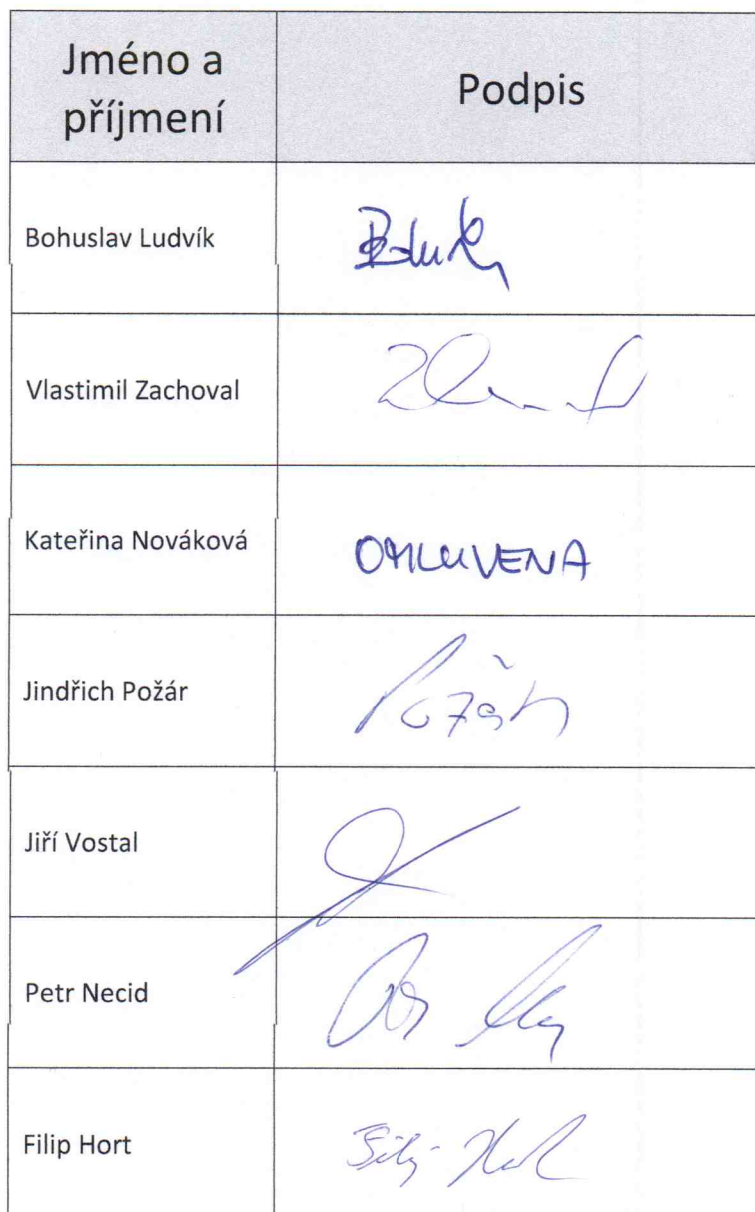 Jméno a
příjmení
Podpis
Bohuslav Ludvík
Vlastimil Zachoval
Kateřina Nováková
OMLUVENA
Jindřich Požár
Požár
Jiří Vostal
Petr Necid
Filip Hort